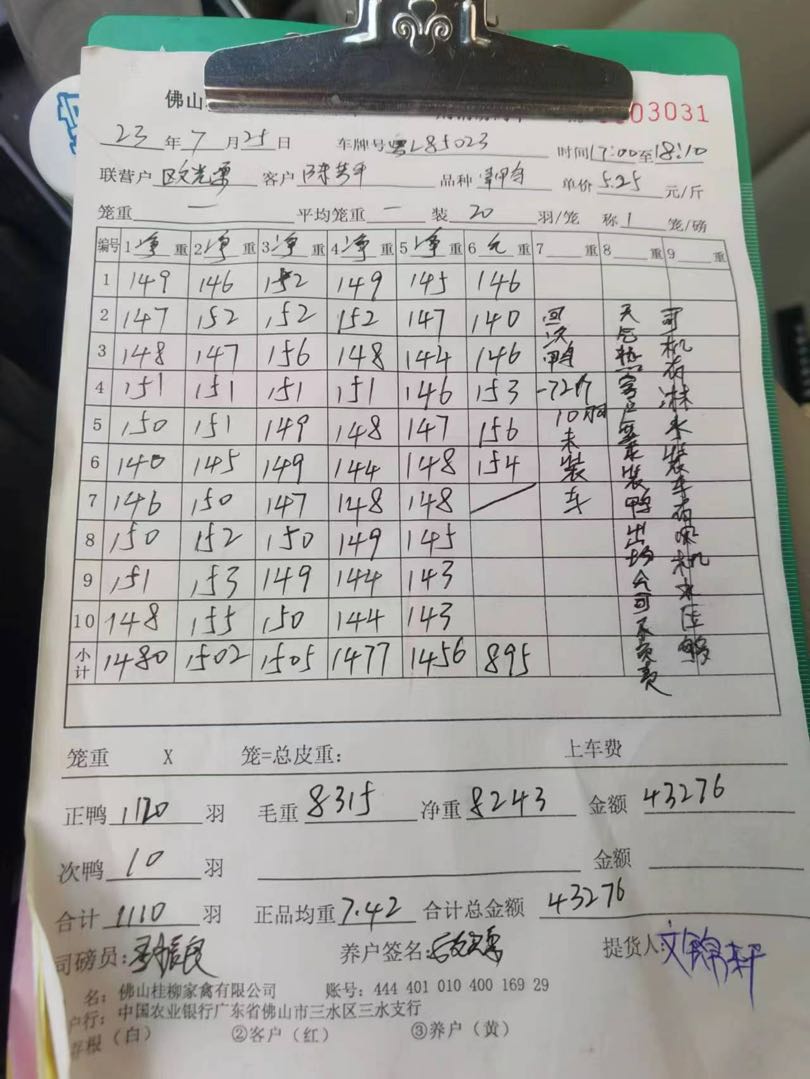 佛山
03031
23 年 7 月 25 日 车牌号 粤L85023 时间 17:00 至 18:10
联营户 客户 品种 单价 5.25 元/斤
笼重 一 平均笼重 一 装 20 羽/笼 称 1 笼/磅
编号 1 净 重 2 净 重 3 净 重 4 净 重 5 净 重 6 重 7 重 8 重 9 重
1 149 146 152 149 145 146
2 147 152 152 152 147 140
3 148 147 156 148 144 146
4 151 151 151 151 146 153
5 150 151 149 148 147 156
6 140 145 149 144 148 154
7 146 150 147 148 148
8 150 152 150 149 145
9 151 153 149 144 143
10 148 155 150 144 143
小计 1480 1502 1505 1477 1456 895
回次鸭-72斤10只未装车
天气热客户要求装鸭出场公司不负责
司机有淋水装车有风机水压够
笼重 X 笼=总皮重: 上车费
正鸭 1120 羽 毛重 8315 净重 8243 金额 43276
次鸭 10 羽 金额
合计 1110 羽 正品均重 7.42 合计总金额 43276
司磅员: 养户签名: 提货人: 文锦轩
名: 佛山桂柳家禽有限公司 账号: 444 401 010 400 169 29
户行: 中国农业银行广东省佛山市三水区三水支行
存根(白) ②客户(红) ③养户(黄)